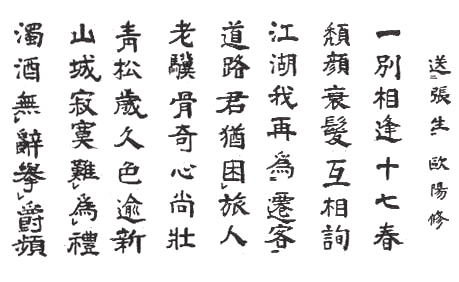 送張生 歐陽修
一別相逢十七春
頽顏衰髮互相詢
江湖我再為遷客
道路君猶困旅人
老驥骨奇心尚壯
青松歲久色逾新
山城寂寞難為禮
濁酒無辭舉爵頻